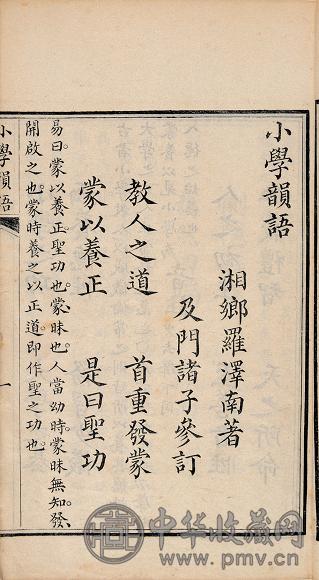 小學韻語
湘鄉羅澤南著
及門諸子參訂
教人之道　首重發蒙
蒙以養正　是曰聖功
易曰蒙以養正聖功也蒙昧也人當幼時蒙昧無知發
開啟之也蒙時養之以正道即作聖之功也
小學韻語
一
中华收藏网
www.pmv.cn